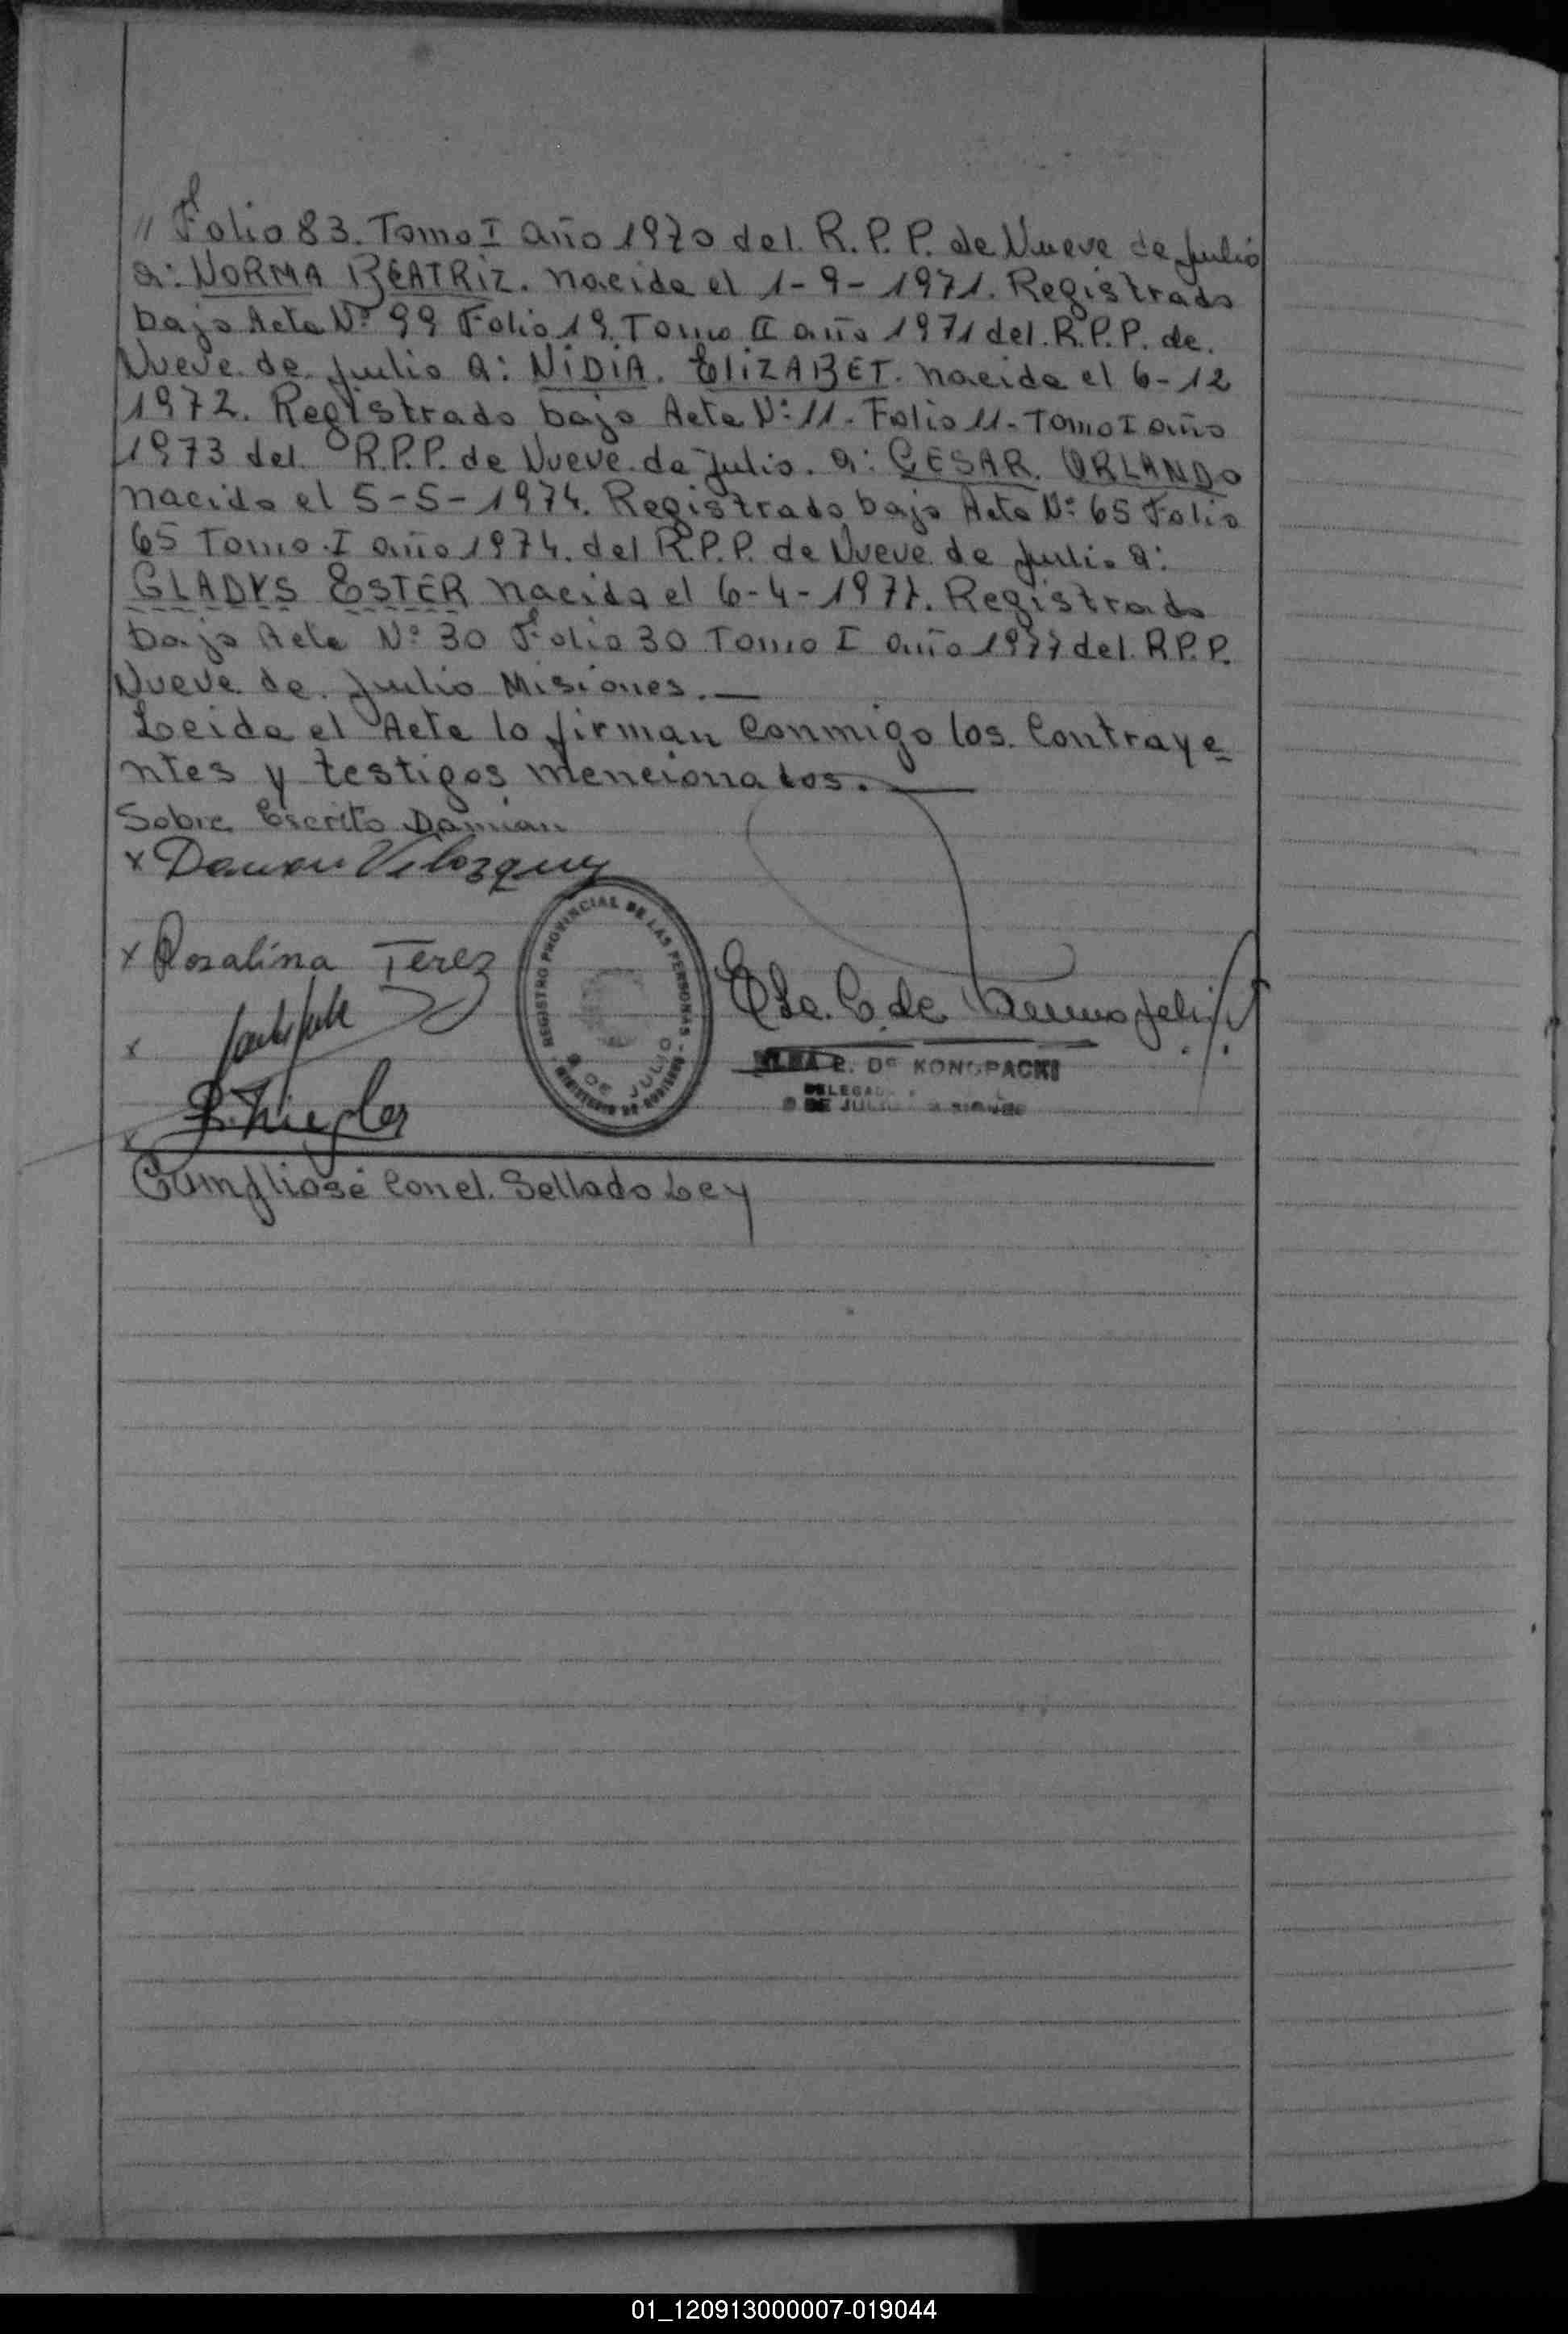 " Folio 83. Tomo I año 1970 del. R.P.P. de Nueve de Julio
a: NORMA BEATRIZ. nacida el 1-9-1971. Registrado
bajo Acta Nº 99 Folio 19. Tomo II año 1971 del. R.P.P. de.
Nueve. de. Julio a: NIDIA. ELIZABET. nacida el 6-12
1972. Registrado bajo Acta Nº 11- Folio 11- Tomo I año
1973 del. R.P.P. de Nueve de Julio. a: CESAR. ORLANDO
nacido el 5-5-1974. Registrado bajo Acta Nº 65 Folio
65 Tomo I año 1974. del R.P.P. de Nueve de Julio a:
GLADYS ESTER nacida el 6-4-1977. Registrado
bajo Acta Nº 30 Folio 30 Tomo I año 1977 del. R.P.P.
Nueve de. Julio Misiones.—
Leida el Acta lo firman Conmigo los. Contraye
ntes y testigos mencionados.—
Sobre Escrito Damian
x Damian Velozquez
x Rosalina Terez
x
REGISTRO PROVINCIAL DE LAS PERSONAS - MINISTERIO DE GOBIERNO
9 DE JULIO
Elba C. de
ELBA C. DE KONOPACKI
DELEGADA
9 DE JULIO - MISIONES
Cumpliose Con el. Sellado Ley
01_120913000007-019044